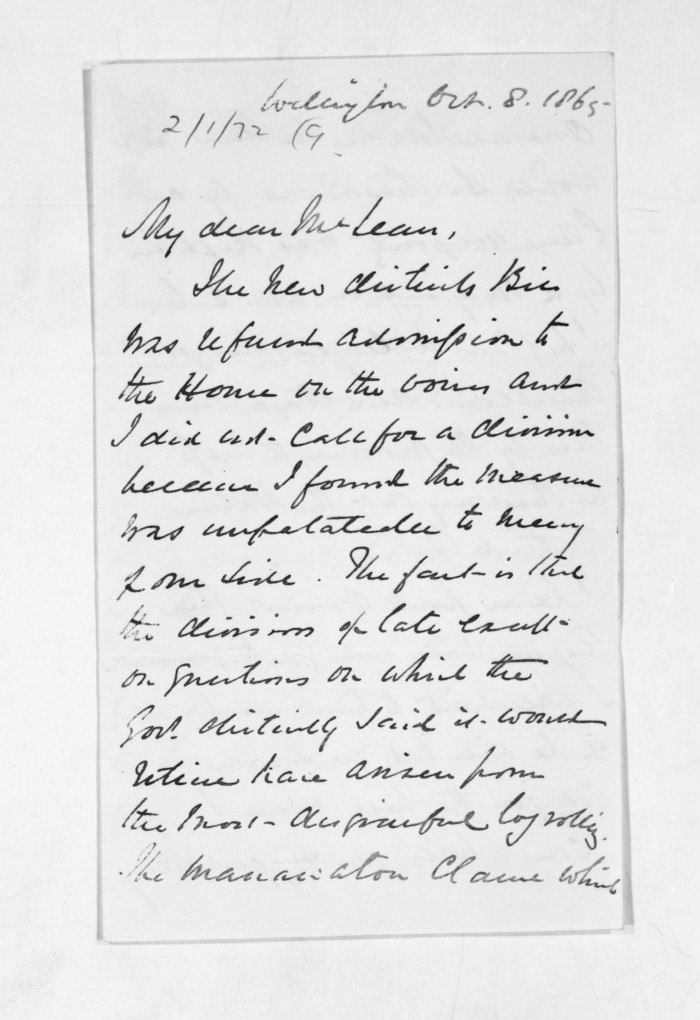 Wellington Oct. 8. 1865
2/1/72
My dear McLean,
The New districts Bill
was refused admission to
the House on the voices and
I did not call for a division
because I found the measure
was unpalatable to many
of our side. The fact is that
the divisions of late except
on questions on which the
Govt. distinctly said it would
retire have arisen from
the most disgraceful logrolling.
The Manawatu Clause which